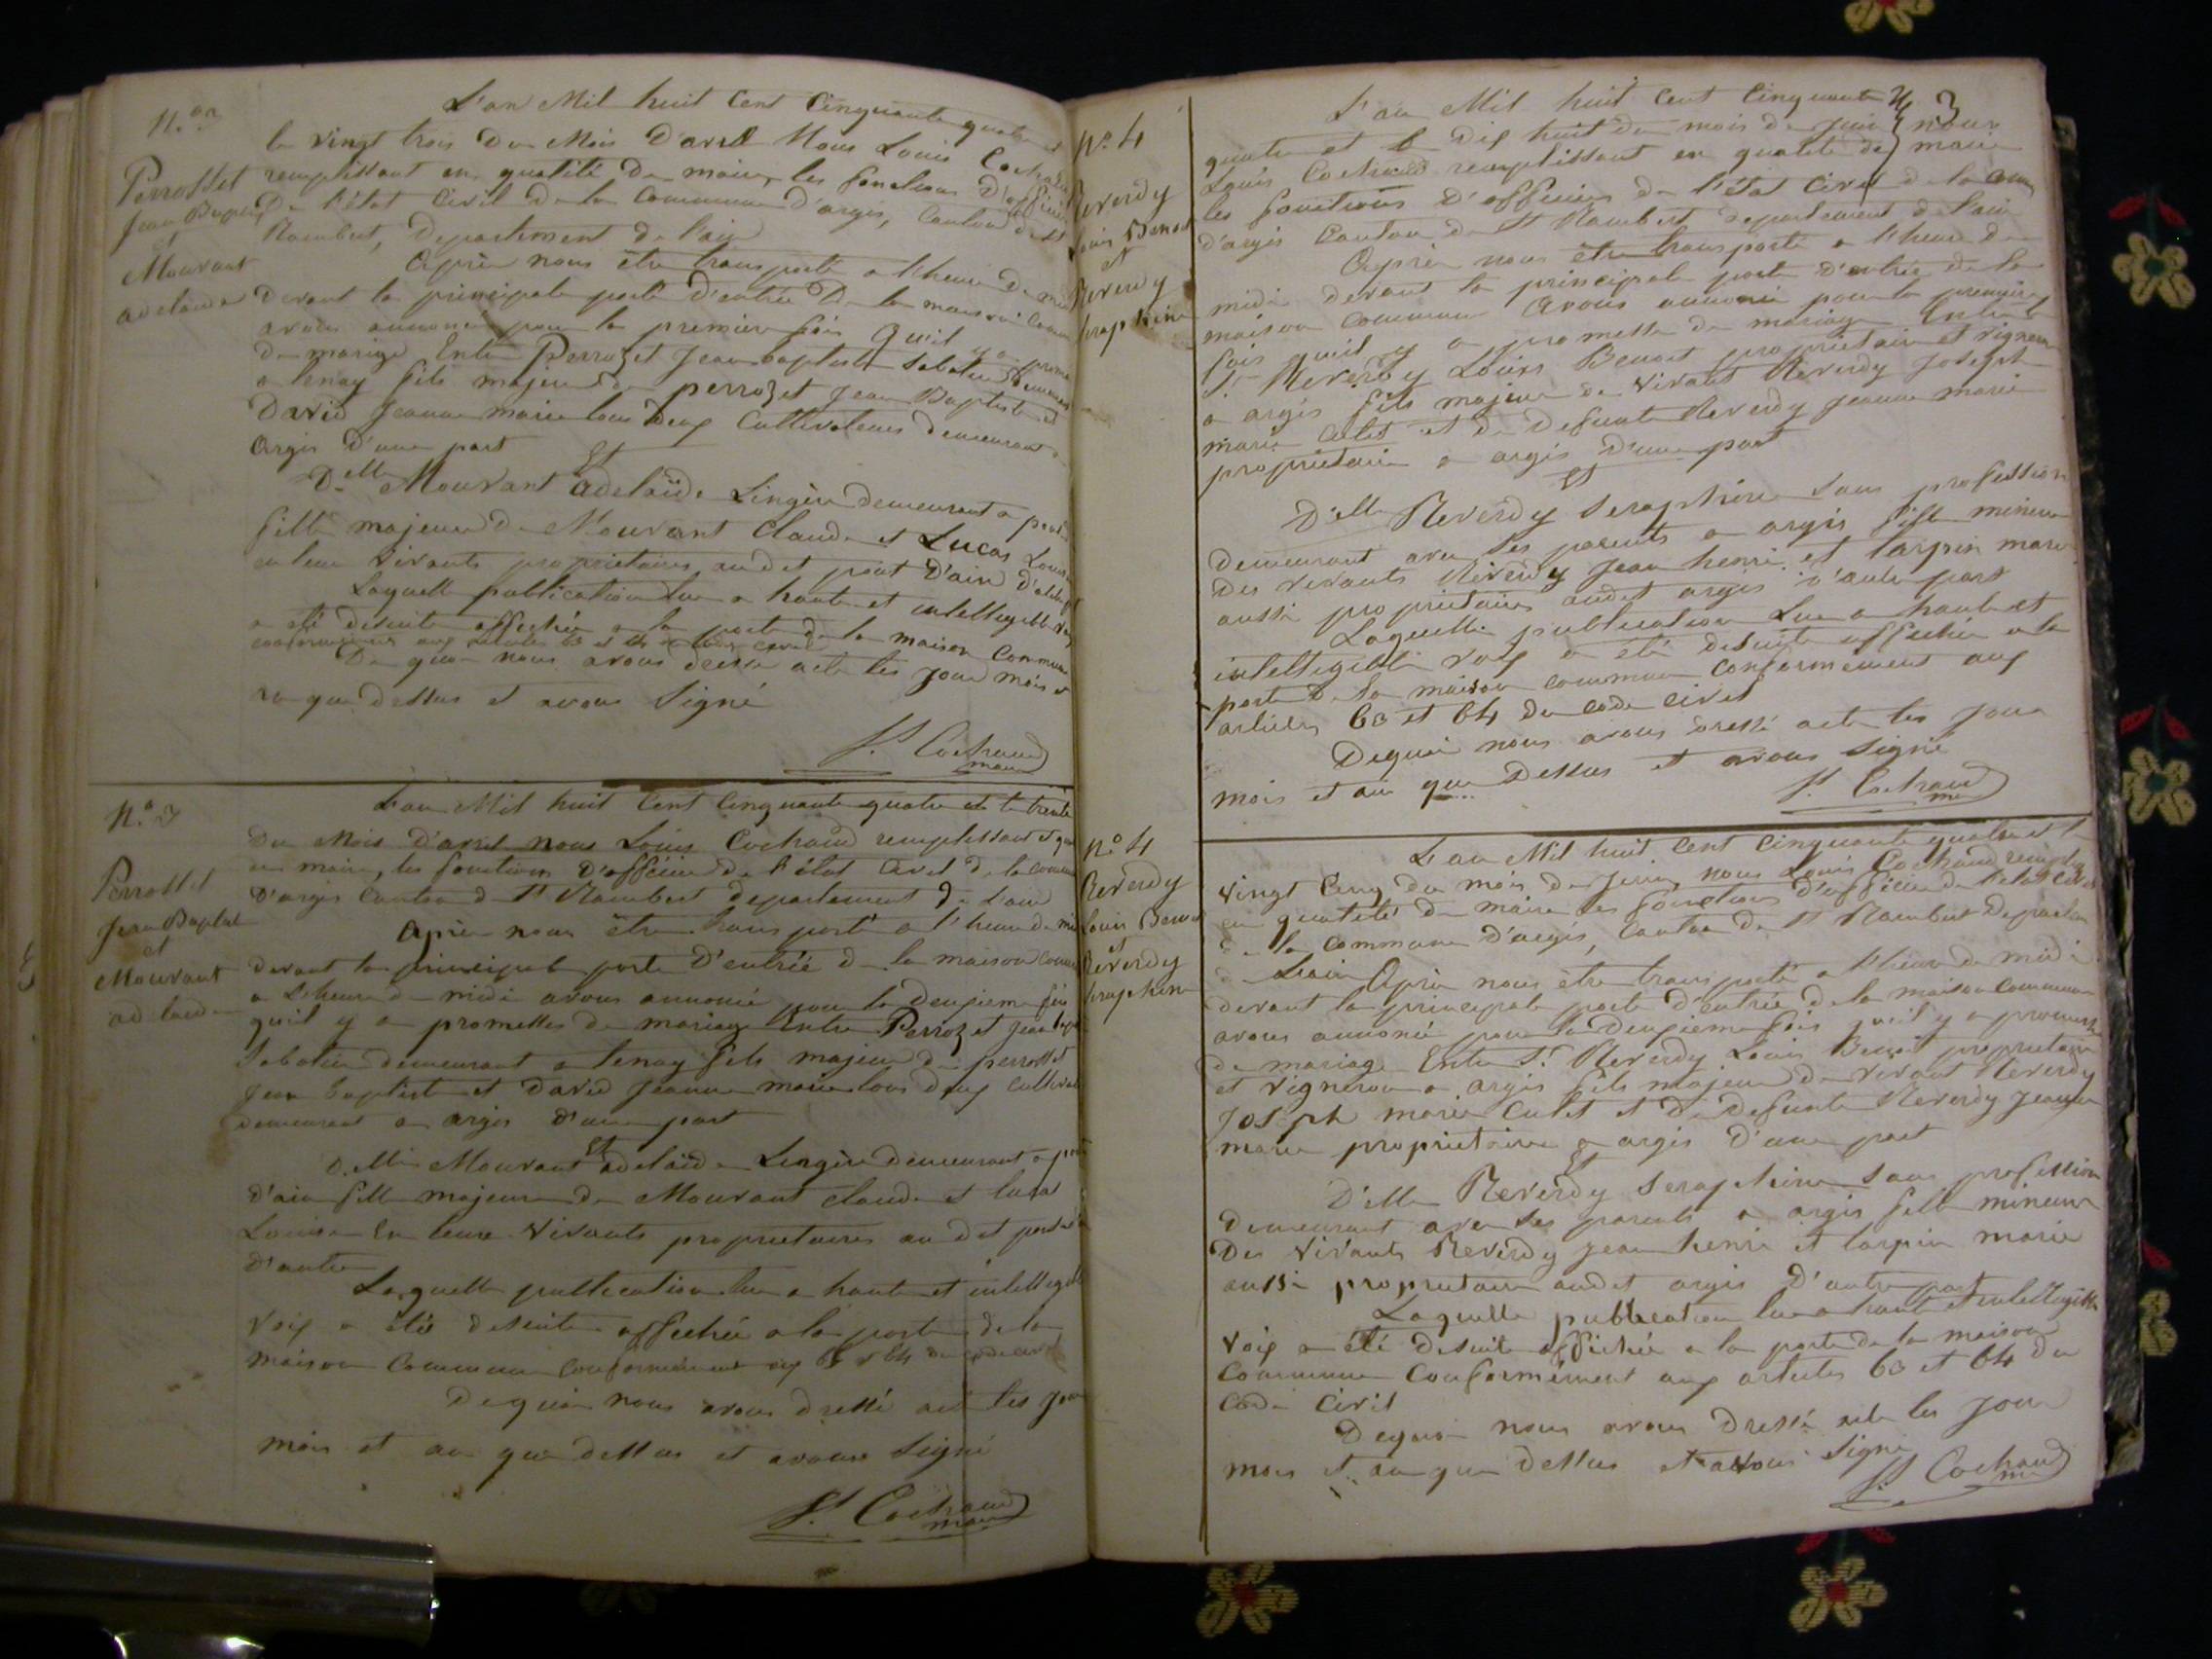 N.° 3
Perrosset
Jean Baptiste
et
Mouvant
adelaide
L'an Mil huit Cent Cinquante quatre et
le vingt trois Du Mois D'avril Nous Louis Cochaud
remplissant en qualité De maire, les fonctions D'officier
De l'état Civil De la Commune D'argis, Canton De St
Rambert, Departement De l'ain
Après nous être transporté a l'heure De midi
Devant la principale porte D'entrée De la maison Commune
avons annoncé pour la premier fois Qu'il y a promesse
De mariage Entre Perrozet Jean baptiste Sabotier demeurant
a tenay fils majeur De perrozet Jean Baptiste et
David Jeanne marie tous Deux Cultivateurs demeurant a
argis D'une part
Et
D.elle Mouvant adelaïde Lingère demeurant a pont
fille majeure De Mouvant Claude et Lucas Louise
en leur vivants proprietaires audit pont D'ain D'autre
Laquelle publication lue a haute et intelligible voix
a été desuite affichée a la porte de la maison Commune
conformément aux articles 63 et 64 du code civil
De quoi nous avons dressé acte les jour mois et
an que dessus et avons Signé
L.s Cochaud
maire
N.° 3
Perrosset
Jean Baptiste
et
Mouvant
adelaide
L'an Mil huit Cent Cinquante quatre et le trente
Du Mois D'avril nous Louis Cochaud remplissant et qualité
de maire, les fonctions D'officier De l'état Civil De la commune
D'argis Canton De St Rambert departement De l'ain
Après nous être transporté a l'heure De midi
devant la principale porte D'entrée De la maison Commune
a L'heure De midi avons annoncé pour la Deuxieme fois
qu'il y a promesses De mariage Entre Perrozet Jean baptiste
Sabotier demeurant a tenay fils majeur De perrosset
Jean baptiste et David Jeanne marie tous deux cultivateurs
demeurant a argis D'une part
Et
D.elle Mouvant adelaïde Lingère demeurant a pont
d'ain fille majeure De Mouvant claude et lucas
Louise En leurs vivants proprietaires au dit pont d'ain
d'autre
Laquelle publication lue a haute et intelligible
voix a été desuite affichée a la porte de la
maison Commune conformément aux 63 et 64 du code civil
De quoi nous avons dressé acte les jour
mois et an que dessus et avons signé
L.s Cochaud
maire
3
N.° 4
Reverdy
Louis Benoit
et
Reverdy
Seraphine
L'an Mil huit Cent Cinquante
quatre et le Dix huit du mois de Juin nous
Louis Cochaud remplissant en qualité de maire
les fonctions D'officier De l'état Civil de la Com
D'argis Canton De St Rambert Departement de l'ain
Après nous être transporté a l'heure De
midi devant la principale porte D'entrée De la
maison commune avons annoncé pour la premiere
fois qu'il y a promesse De mariage Entre le
S.r Reverdy Louis Benoit proprietaire et vigneron
a argis fils majeur De vivant Reverdy Joseph
marie Culet et De Defunte Reverdy Jeanne marie
proprietaire a argis D'une part
Et
D.elle Reverdy Seraphine sans profession
demeurant avec ses parents a argis fille mineure
Des vivants Reverdy Jean henri et tarpin marie
aussi proprietaires audit argis D'autre part
Laquelle publication Lue a haute et
intelligible voix a été desuite affichée a la
porte De la maison commune conformément aux
articles 63 et 64 du code civil
Dequoi nous avons dressé acte les jour
mois et an que Dessus et avons signé
L.s Cochaud
mre
N.° 4
Reverdy
Louis Benoit
et
Reverdy
Seraphine
L'an Mil huit Cent Cinquante quatre et le
vingt Cinq du mois De Juin, nous Louis Cochaud remplis
en qualité De maire les fonctions D'officier De l'état civil
De la Commune D'argis, Canton De St Rambert Departem
De l'ain Après nous être transporté a l'heure De midi
devant la principale porte D'entrée De la maison commune
avons annoncé pour la Deuxieme fois qu'il y a promesse
De mariage Entre S.r Reverdy Louis Benoit proprietaire
et vigneron a argis fils majeur De vivant Reverdy
Joseph marie Culet et De Defunte Reverdy Jeanne
marie proprietaire a argis D'une part
Et
D'elle Reverdy Seraphine sans profession
Demeurant avec ses parents a argis fille mineure
Des vivants Reverdy Jean henri et tarpin marie
aussi proprietaire audit argis D'autre part
Laquelle publication lue a haute et intelligible
voix a été De suite affichée a la porte De la maison
Commune Conformément aux articles 63 et 64 du
Code Civil
Dequoi nous avons Dressé acte les jour
mois et an que Dessus et avons signé
L.s Cochaud
mre